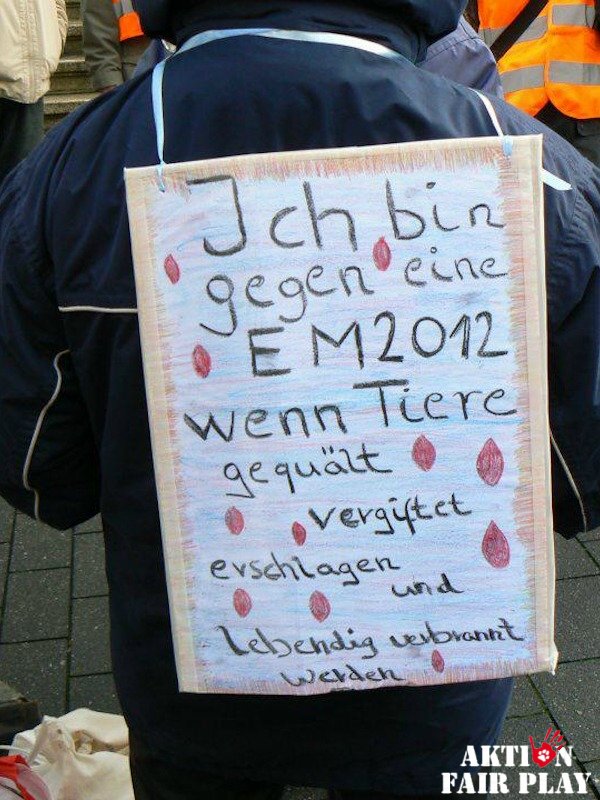 Ich bin
gegen eine
EM2012
wenn Tiere
gequält
vergiftet
erschlagen
und
lebendig verbrannt
werden
AKTION
FAIR PLAY